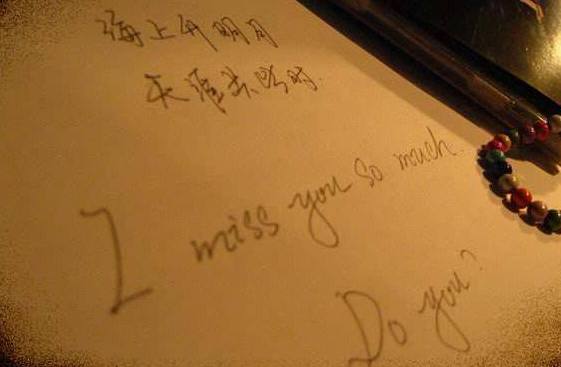 海上升明月
天涯共此时.
I miss you so much.
Do you?